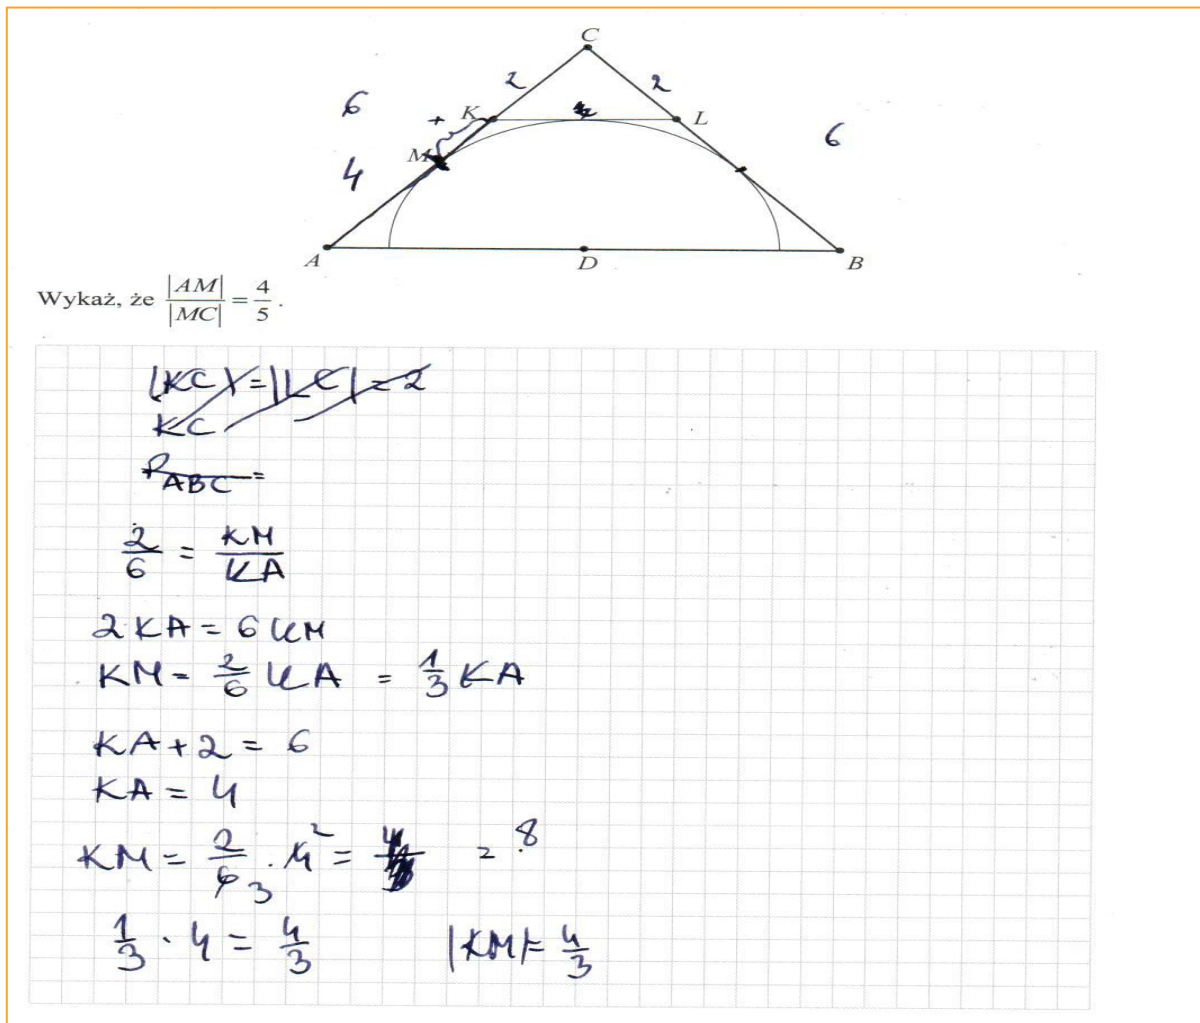 C
2
2
6
K
4
L
6
M
4
A
D
B
Wykaż, że |AM|/|MC| = 4/5 .
|KC| = |LC| = 2
KC
P_ABC =
2/6 = KM/KA
2KA = 6KM
KM = 2/6 KA = 1/3 KA
KA + 2 = 6
KA = 4
KM = 2/6 3 · 4 2 = = 8
1/3 · 4 = 4/3 |KM| = 4/3